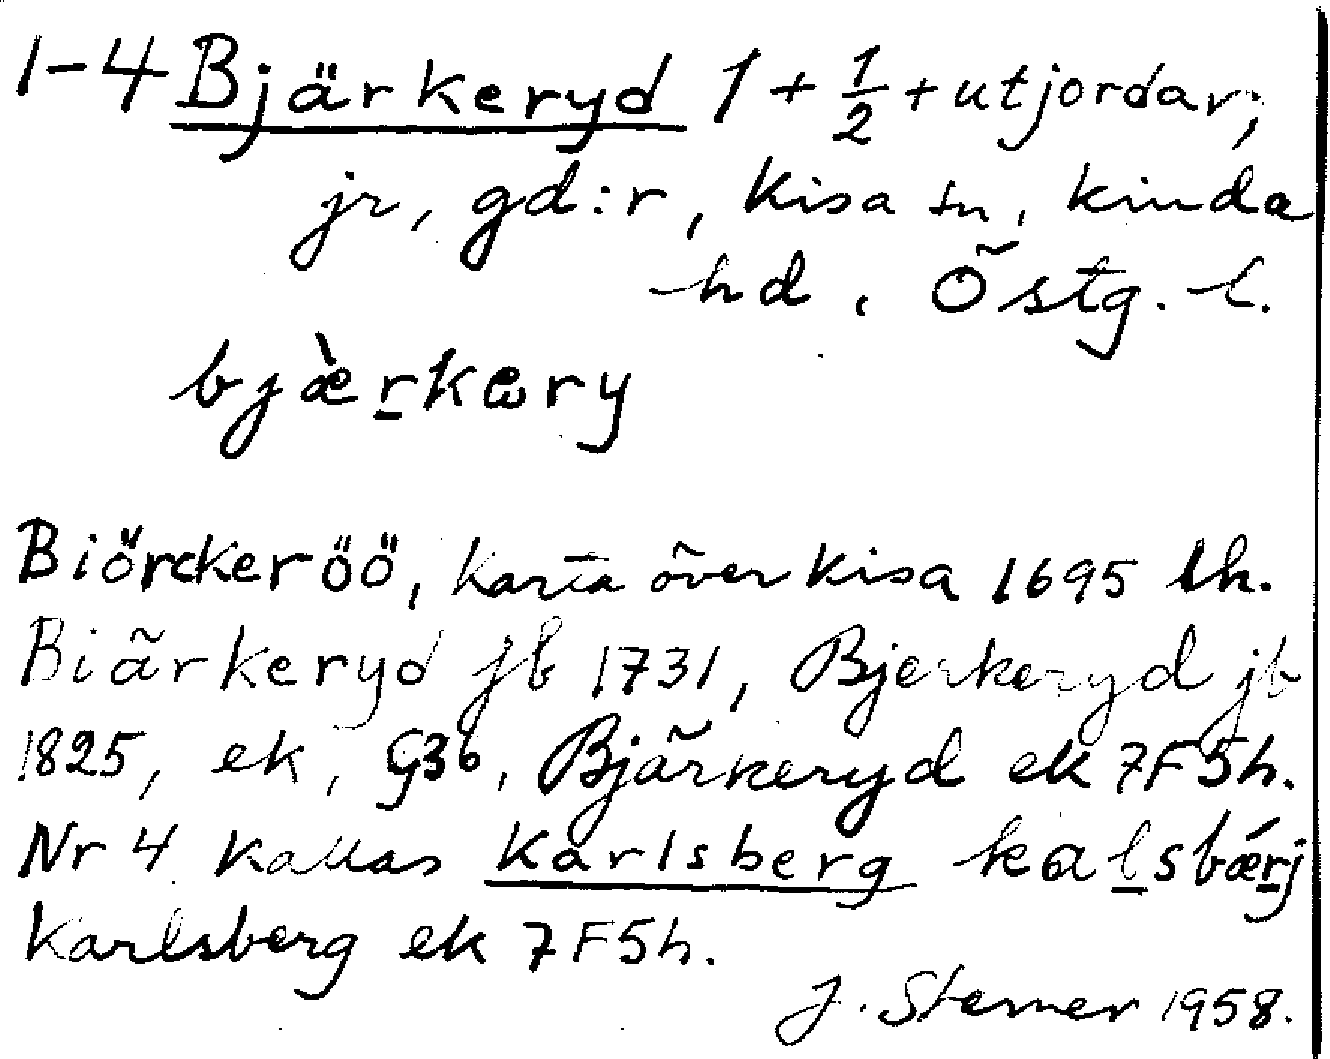 1-4 Bjärkeryd 1 + 1/2 + utjordar;
jr, gd:r, Kisa sn, Kinda
hd, Östg. l.
bjæ̀r̲kɷry
Biörckeröö, Karta över Kisa 1695 lh.
Biärkeryd jb 1731, Bjerkeryd jb
1825, ek, G36, Bjärkeryd ek 7F5h.
Nr 4 kallas Karlsberg kal̲sbǽr̲j
Karlsberg ek 7F5h.
J. Sterner 1958.